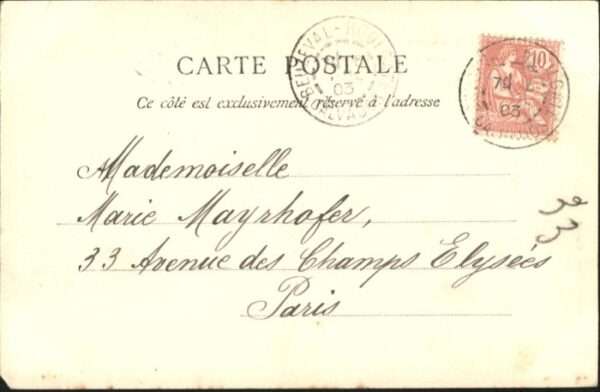 CARTE POSTALE
Ce côté est exclusivement réservé à l'adresse
BEUZEVAL-HOUL
03
CALVADOS
10
03
Mademoiselle
Marie Mayrhofer,
33 Avenue des Champs Elysées
Paris
33